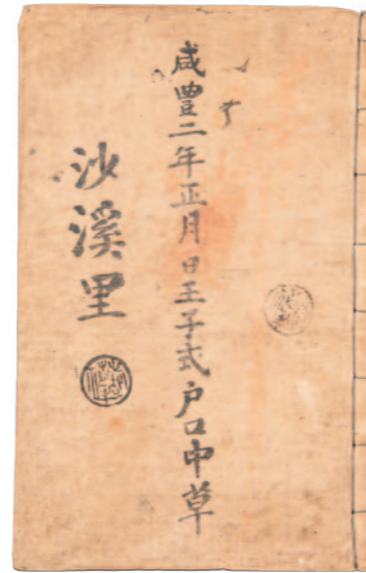 咸豊二年正月日壬子式户口中草
沙溪里